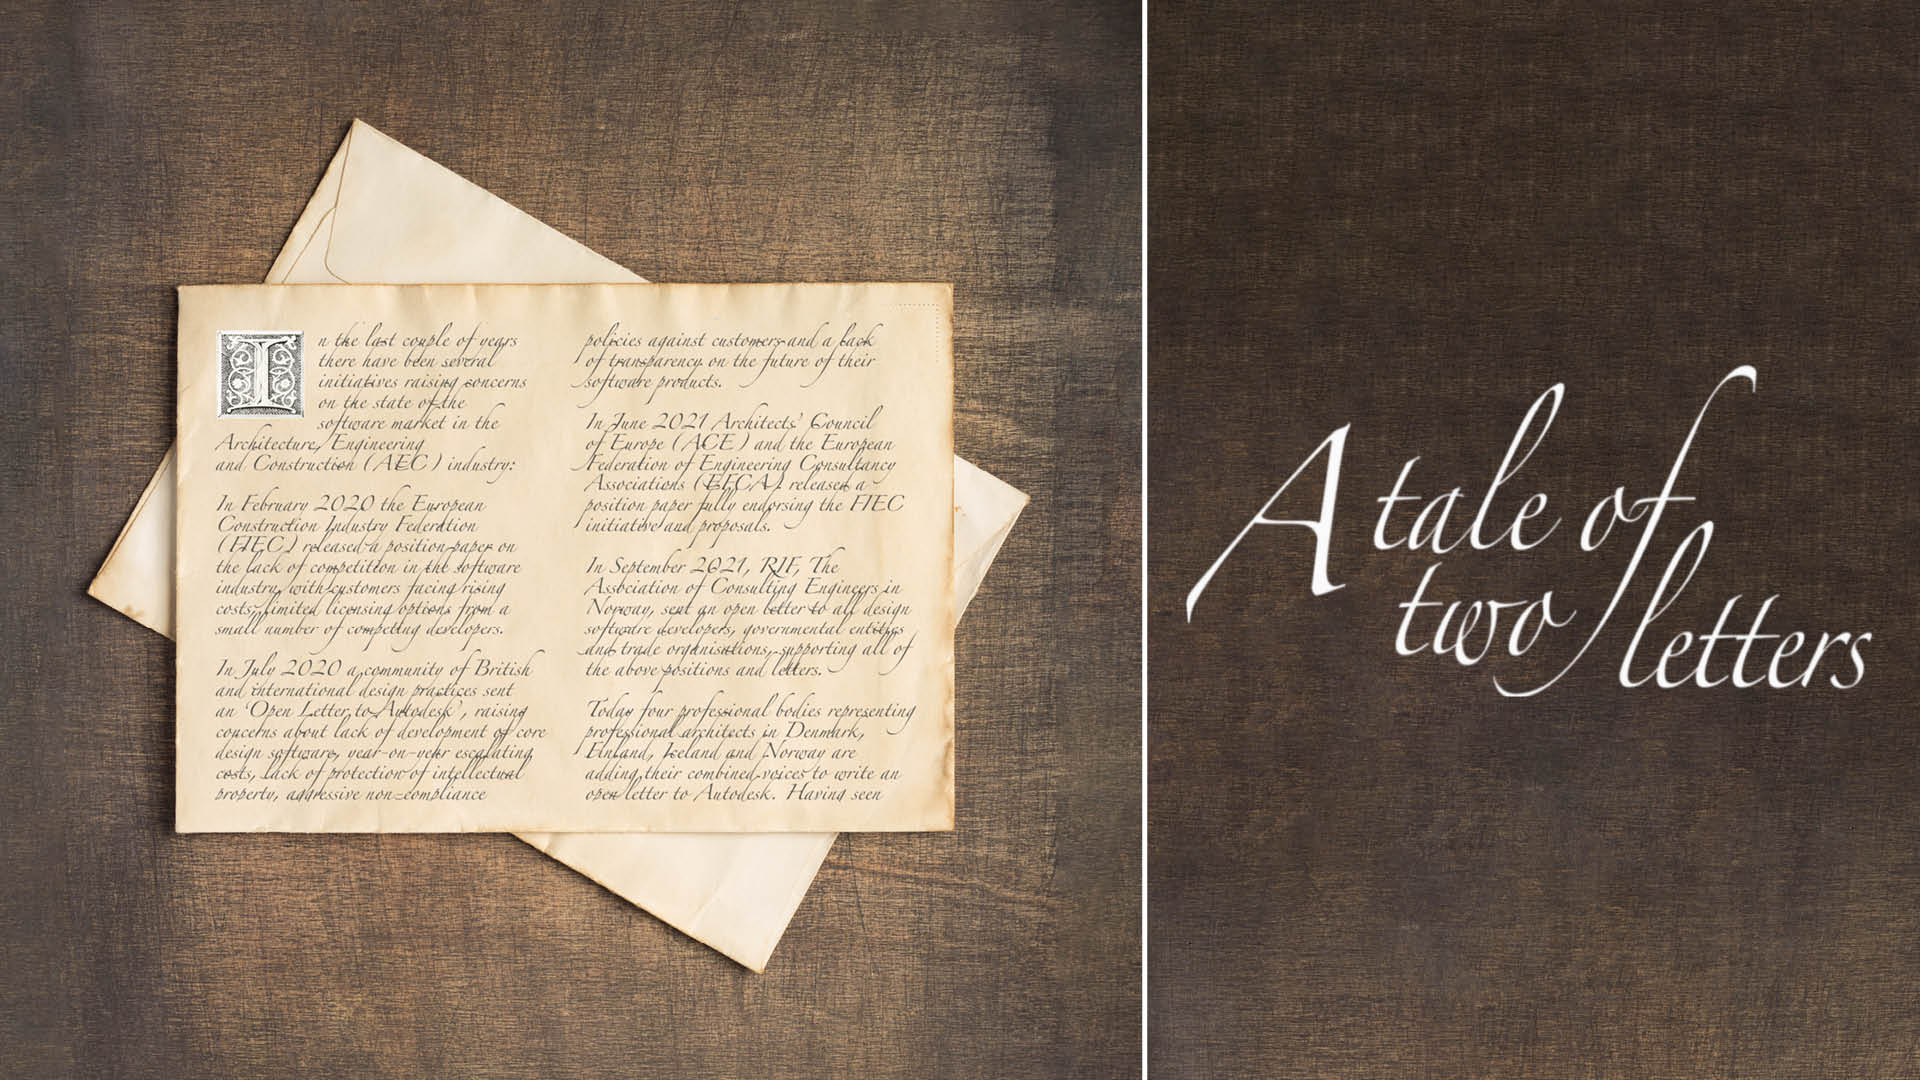 In the last couple of years
there have been several
initiatives raising concerns
on the state of the
software market in the
Architecture, Engineering
and Construction (AEC) industry:
In February 2020 the European
Construction Industry Federation
(FIEC) released a position paper on
the lack of competition in the software
industry, with customers facing rising
costs, limited licensing options from a
small number of competing developers.
In July 2020 a community of British
and international design practices sent
an ‘Open Letter to Autodesk’, raising
concerns about lack of development of core
design software, year-on-year escalating
costs, lack of protection of intellectual
property, aggressive non-compliance
policies against customers and a lack
of transparency on the future of their
software products.
In June 2021 Architects’ Council
of Europe (ACE) and the European
Federation of Engineering Consultancy
Associations (EFCA) released a
position paper fully endorsing the FIEC
initiative and proposals.
In September 2021, RIF, The
Association of Consulting Engineers in
Norway, sent an open letter to all design
software developers, governmental entities
and trade organisations, supporting all of
the above positions and letters.
Today four professional bodies representing
professional architects in Denmark,
Finland, Iceland and Norway are
adding their combined voices to write an
open letter to Autodesk. Having seen
A tale of
two letters